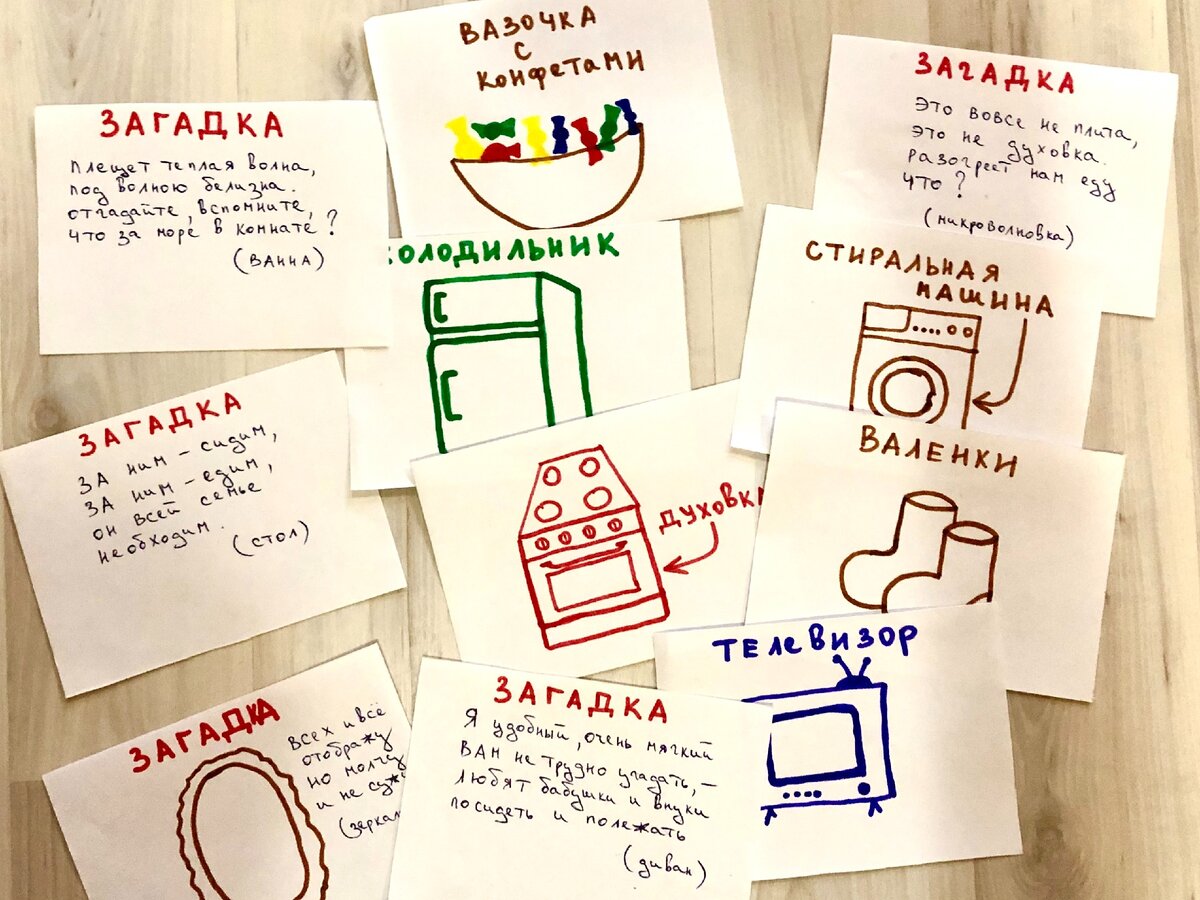 ВАЗОЧКА
С
КОНФЕТАМИ
ЗАГАДКА
Плещет теплая волна,
под волною белизна.
отгадайте, вспомните,
что за море в комнате?
(ванна)
ЗАГАДКА
Это вовсе не плита,
это не духовка.
разогреет нам еду
что?
(микроволновка)
ХОЛОДИЛЬНИК
СТИРАЛЬНАЯ
МАШИНА
ЗАГАДКА
За ним – сидим,
За ним – едим,
он всей семье
необходим.
(стол)
ДУХОВКА
ВАЛЕНКИ
ТЕЛЕВИЗОР
ЗАГАДКА
Всех и всё
отображу
но молчу
и не сужу
(зеркал
ЗАГАДКА
Я удобный, очень мягкий
Вам не трудно угадать, –
любят бабушки и внуки
посидеть и полежать
(диван)